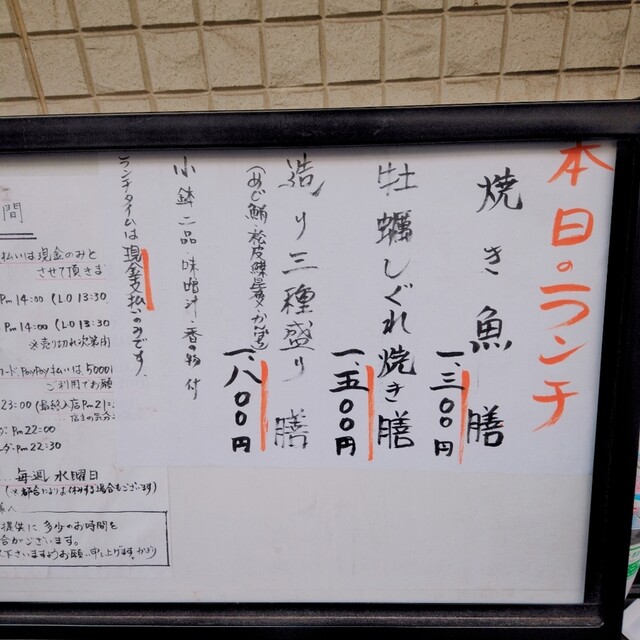 本日のランチ
焼き魚膳
一、三〇〇円
牡蠣しぐれ焼き膳
一、五〇〇円
造り三種盛り膳
一、八〇〇円
小鉢二品・味噌汁・香の物付
ランチタイムは現金支払いのみです。
間
払いは現金のみと
させて頂きま
Pm 14:00 (LO 13:30
Pm 14:00 (LO 13:30
※売り切れ次第閉
カード・PayPay払いは5000
ご利用でお願
23:00 (最終入店Pm 21:
Pm 22:00
Pm 22:30
毎週水曜日
(※都合により休みする場合もございます)
提供に多少のお時間を
合がございます。
下さいますようお願い申し上げます。